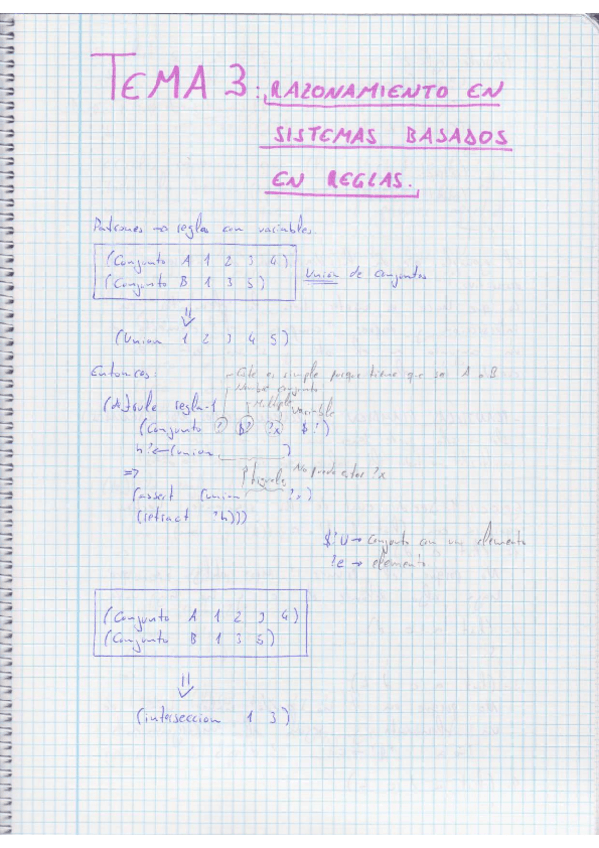 TEMA 3: RAZONAMIENTO EN
SISTEMAS BASADOS
EN REGLAS.
Patrones no reglas con variables.
(Conjunto A 1 2 3 4)
(Conjunto B 1 3 5)
Union de conjuntos
⇓
(Union 1 2 3 4 5)
Entonces:
Este es simple porque tiene que ser A o B
Nombre conjunto
Multiple
Variable
(defrule regla-1
(Conjunto ? $? ?x $?)
h?←(union )
No puede estar ?x
=>
(assert (union ?x)
(retract ?h)))
$?U → Conjunto con un elemento
?e → elemento
(Conjunto A 1 2 3 4)
(Conjunto B 1 3 5)
⇓
(interseccion 1 3)